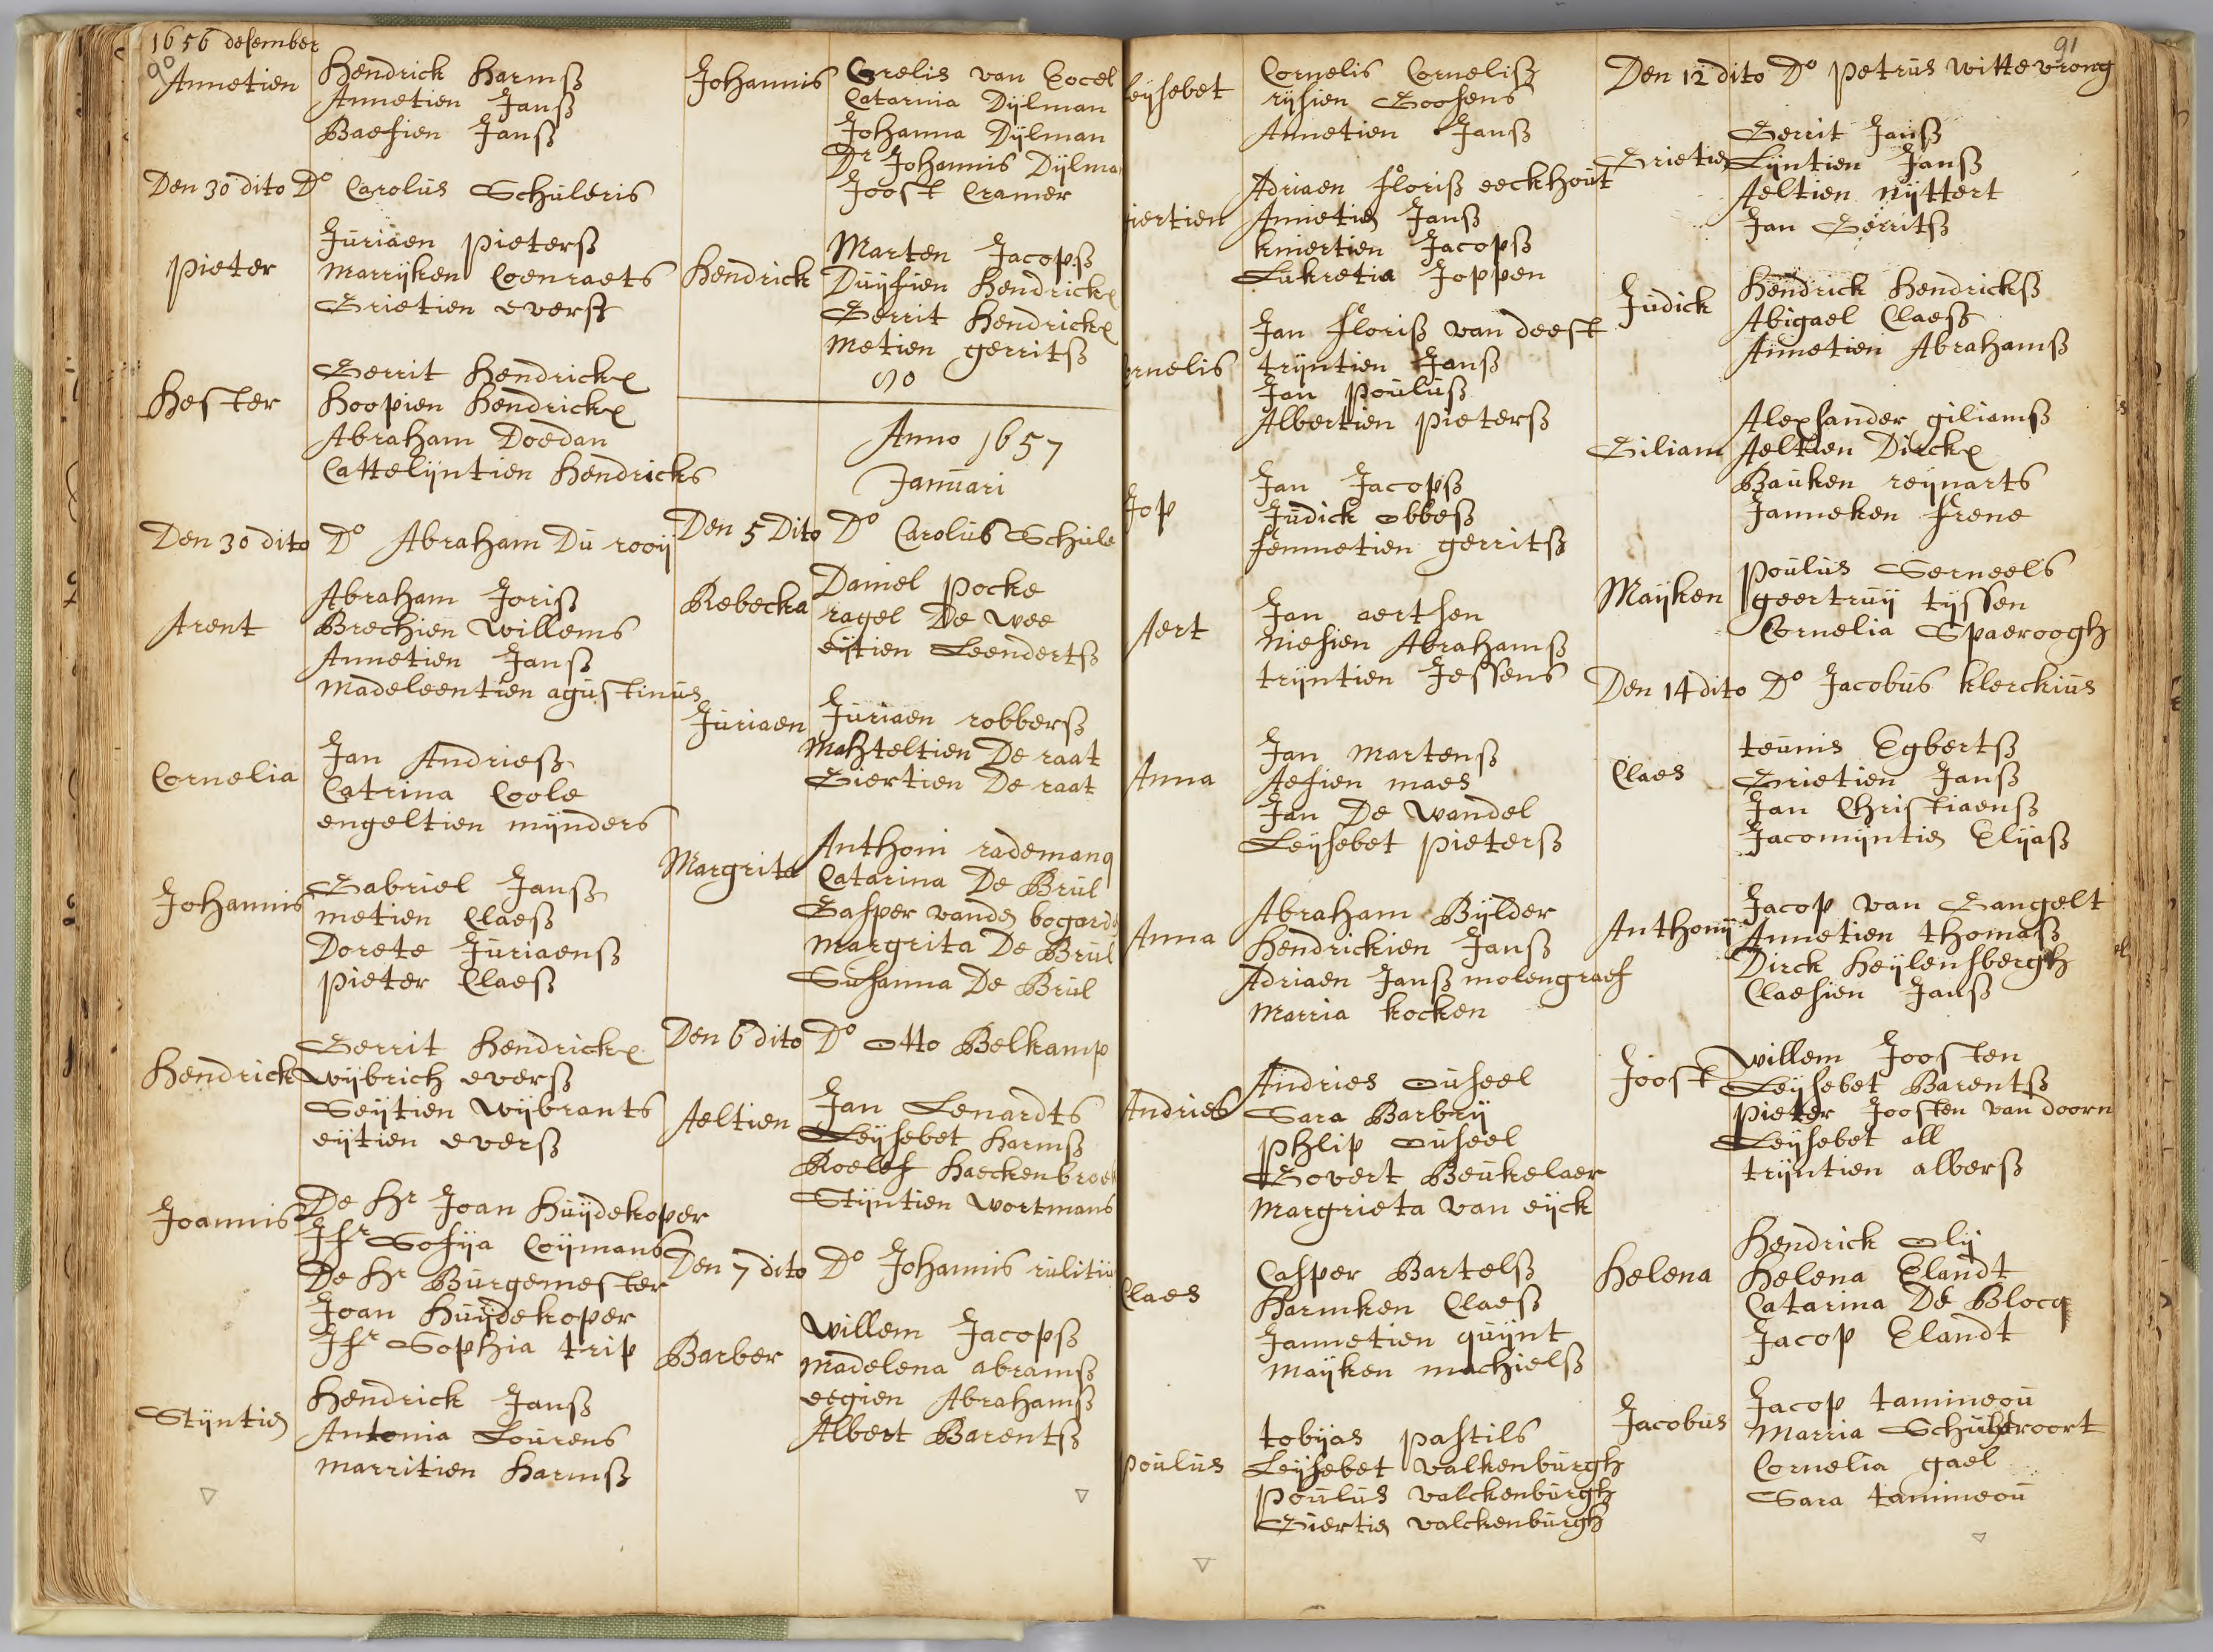 1656 desember
90
Annetien
Hendrick Harmß
Annetien Janß
Baefien Janß
Den 30 dito Do Carolus Schuleris
Pieter
Juriaen Pieterß
Marrijken Coenraets
Grietien everß
Hester
Gerrit Hendrickx
Hoopien Hendrickx
Abraham Doedan
Cattelijntien Hendricks
Den 30 dito Do Abraham Du rooij
Arent
Abraham Joriß
Brechien Willems
Annetien Janß
Madeleentien agustinus
Cornelia
Jan Andrieß
Catrina Coole
engeltien mijnders
Johannis
Gabriel Janß
metien Claeß
Dorete Juriaenß
Pieter Claeß
Hendrick
Gerrit Hendrickx
Wijbrich everß
Seijtien Wijbrants
eijtien everß
Joannis
De Hr Joan Huijdekoper
Jfr Sofija Coijmans
De Hr Burgemester
Joan Huijdekoper
Jfr Sophia trip
Stijntien
Hendrick Janß
Antonia Lourens
Marritien Harmß
Johannis
Catarina Dijlman
Johanna Dijlman
Dr Johannis Dijlma
Joost Cramer
Hendrick
Marten Jacopß
Duijfien Hendrickx
Gerrit Hendrickx
Metien gerritß
90
Anno 1657
Januari
Den 5 Dito Do Carolus Schule
Rebecka
Daniel Pocke
ragel De wee
eijtien Leendertß
Juriaen
Juriaen robberß
Machteltien De raat
Giertien De raat
Margrita
Anthoni rademang
Catarina De Brul
Gasper vanden bogard
Margrita De Brul
Susanna De Brul
Den 6 dito Do Otto Belkamp
Aeltien
Jan Lenardts
Leijsebet Harmß
Roelef Haeckenbroek
Stijntien Wortmans
Den 7 dito Do Johannis rulitiu
Barber
Willem Jacopß
Madelena abramß
eegien Abrahamß
Albert Barentß
91
eijsebet
Cornelis Cornelisz
rijsien Goosens
Annetien Janß
iertien
Adriaen Floriß eeckhout
Annetien Janß
kniertien Jacopß
Lukretia Joppen
ornelis
Jan Floriß van deest
trijntien Janß
Jan Pouluß
Albertien Pieterß
Jop
Jan Jacopß
Judick obbeß
femmetien gerritß
Aert
Jan aertsen
Niesien Abrahamß
trijntien Jessens
Anna
Jan Martenß
Aefien maes
Jan De Wandel
Leijsebet Pieterß
Anna
Abraham Bijlder
Hendrickien Janß
Adriaen Janß molengraef
Marria kocken
Andries
Andries ouseel
Sara Barbrij
Phlip ouseel
Govert Beukelaer
Margrieta van eijck
Claes
Casper Bartelß
Harmken Claeß
Jannetien quijnt
Maijken machielß
Poulus
tobijas Pastils
Leijsebet Valkenburgh
Poulus valckenburgh
Giertien valckenburgh
Den 12 dito Do Petrus Wittevrong
Grietien
Gerrit Janß
Lijntien Janß
Aeltien Nijttert
Jan Gerritß
Judick
Hendrick Hendrickß
Abigael Claeß
Annetien Abrahamß
Giliam
Alexsander giliamß
Aeltien Dirckx
Bauken reijnarts
Janneken Frene
Maijken
Poulus Serneels
geertruij tijssen
Cornelia Spaeroogh
Den 14 dito Do Jacobus klerckius
Claes
teunis Egbertß
Grietien Janß
Jan Christiaenß
Jacomijntien Elijaß
Anthonij
Jacop van Gangelt
Annetien thomaß
Dirck Heijlensbergh
Claesien Janß
Joost
Willem Joosten
Leijsebet Barentß
Pieter Joosten van doorn
Leijsebet all
trijntien alberß
Helena
Hendrick Olij
Helena Elandt
Catarina De Blocq
Jacop Elandt
Jacobus
Jacop tamineou
Marria
Cornelia gael
Sara tamineou